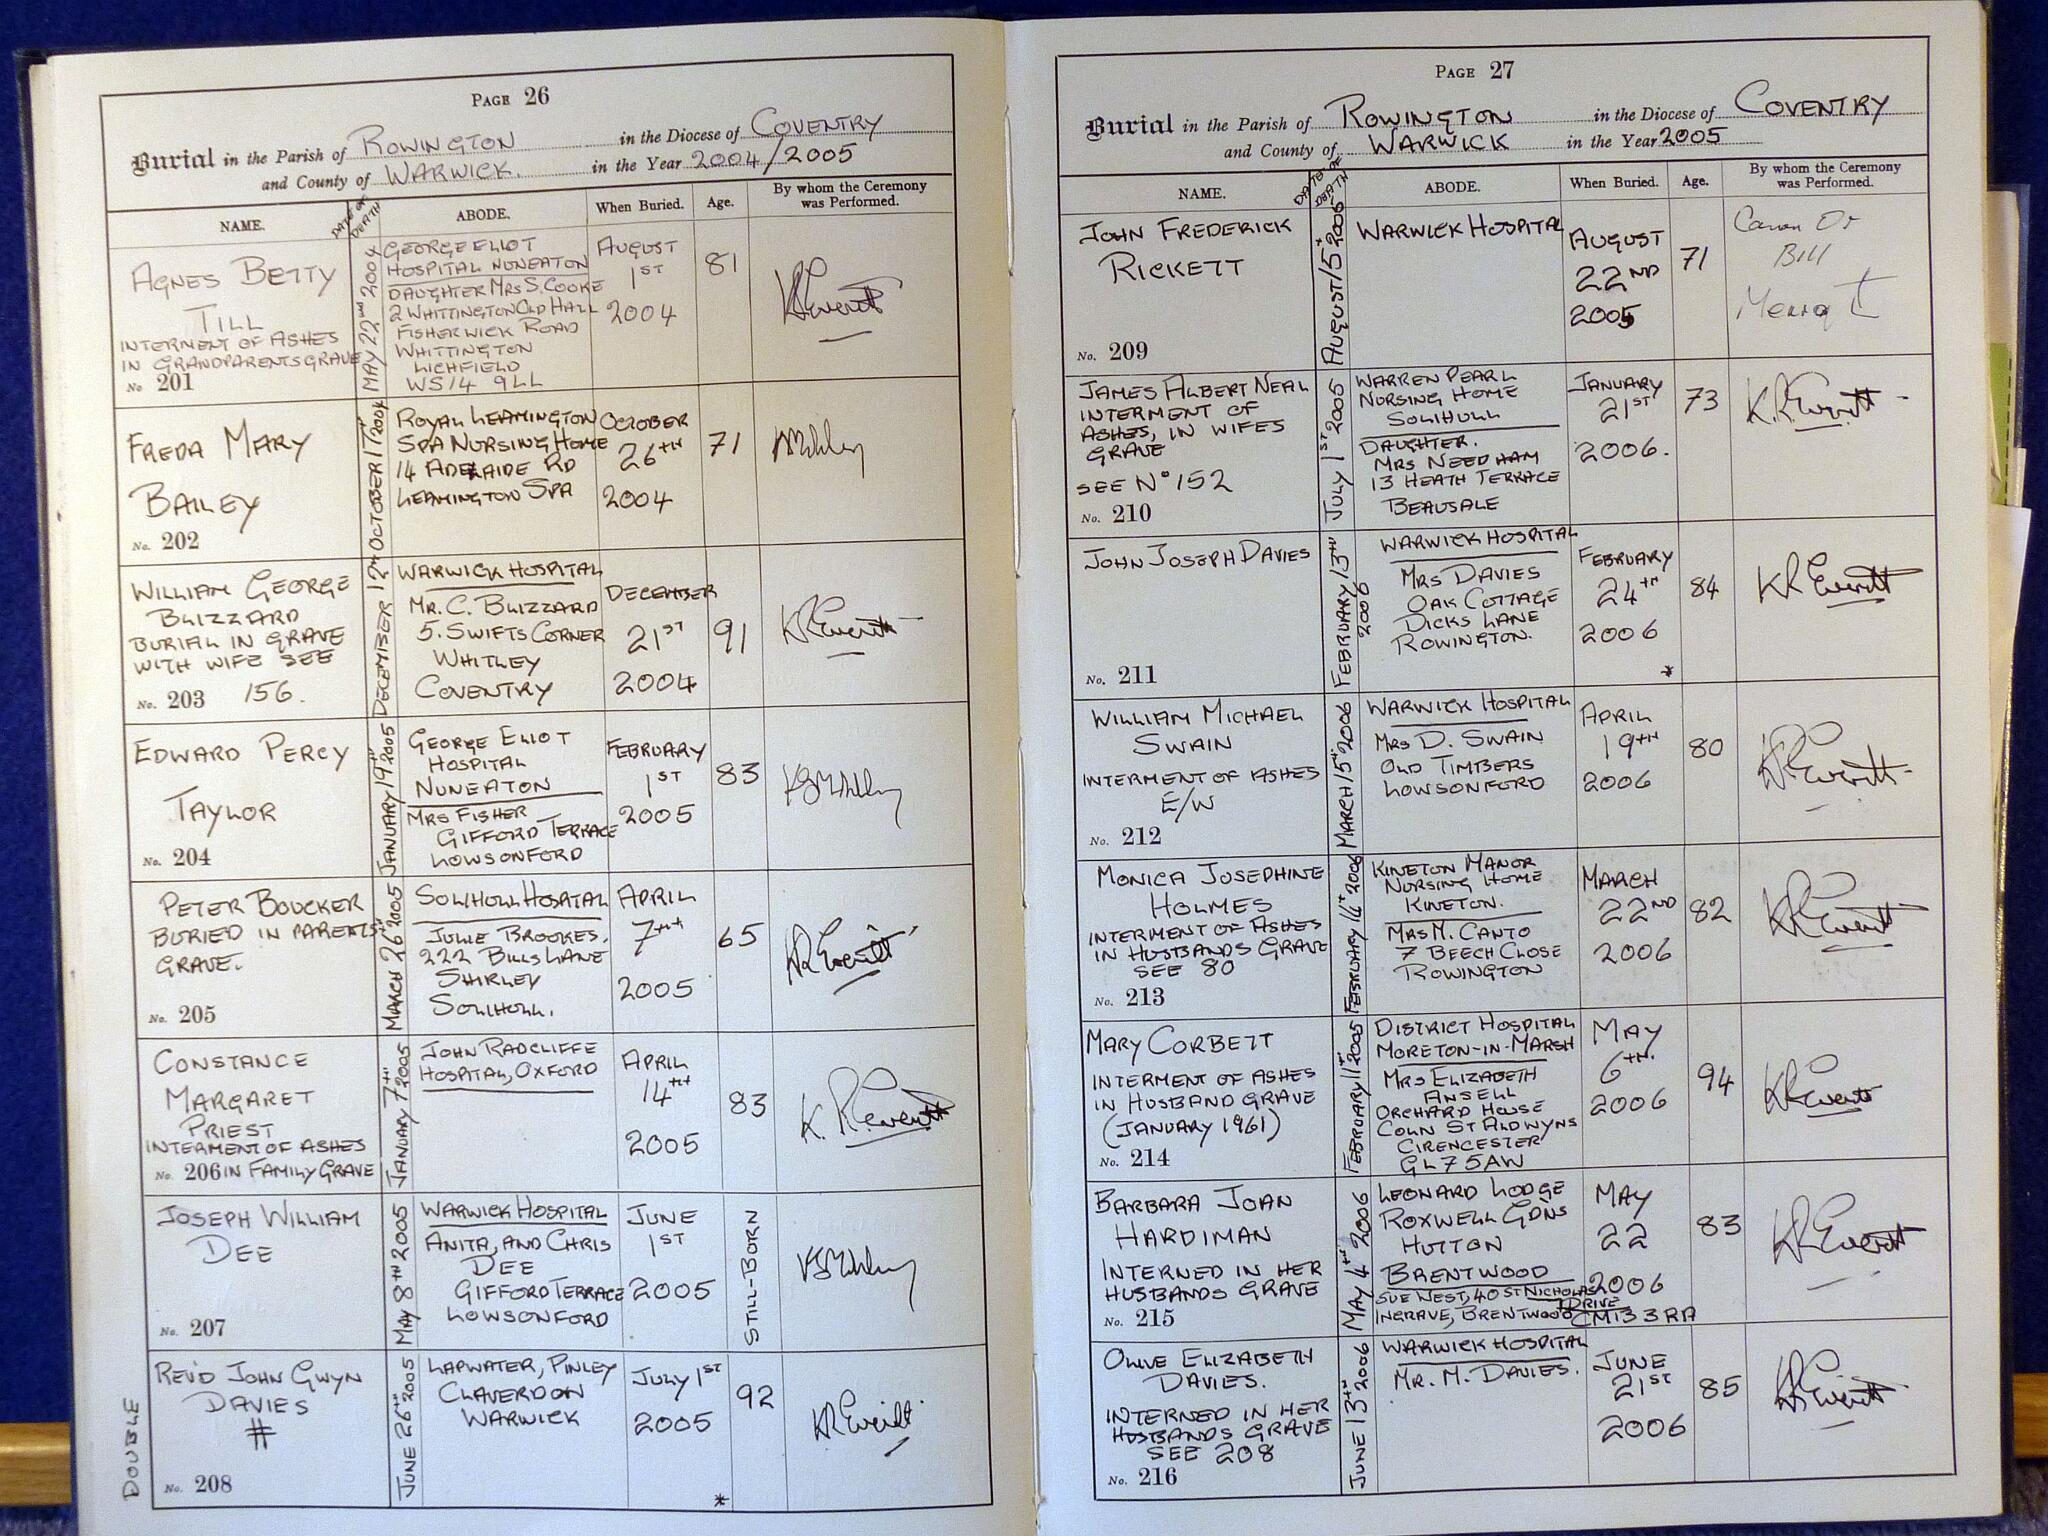 PAGE 26
Burial in the Parish of ROWINGTON in the Diocese of COVENTRY
and County of WARWICK. in the Year 2004/2005
NAME.
DATE OF DEATH
ABODE.
When Buried.
Age.
By whom the Ceremony
was Performed.
AGNES BETTY
TILL
INTERMENT OF ASHES
IN GRANDPARENTS GRAVE
No 201
MAY 22ND 2004
GEORGE ELIOT
HOSPITAL NUNEATON
DAUGHTER MRS S. COOKE
2 WHITTINGTON OLD HALL
FISHERWICK ROAD
WHITTINGTON
LICHFIELD
WS14 9LL
AUGUST
1ST
2004
81
KREveritt
FREDA MARY
BAILEY
No. 202
OCTOBER 17TH 2004
ROYAL LEAMINGTON
SPA NURSING HOME
14 ADELAIDE RD
LEAMINGTON SPA
OCTOBER
26TH
2004
71
WILLIAM GEORGE
BLIZZARD
BURIAL IN GRAVE
WITH WIFE SEE
No. 203 156.
DECEMBER 12TH
WARWICK HOSPITAL
MR. C. BLIZZARD
5. SWIFTS CORNER
WHITLEY
COVENTRY
DECEMBER
21ST
2004
91
KREveritt
EDWARD PERCY
TAYLOR
No. 204
JANUARY 19TH 2005
GEORGE ELIOT
HOSPITAL
NUNEATON
MRS FISHER
GIFFORD TERRACE
LOWSONFORD
FEBRUARY
1ST
2005
83
PETER BOUCKER
BURIED IN PARENTS
GRAVE.
No. 205
MARCH 26TH 2005
SOLIHULL HOSPITAL
JULIE BROOKES.
222 BILLS LANE
SHIRLEY
SOLIHULL.
APRIL
7TH
2005
65
KREveritt
CONSTANCE
MARGARET
PRIEST
INTERMENT OF ASHES
No. 206 IN FAMILY GRAVE
JANUARY 7TH 2005
JOHN RADCLIFFE
HOSPITAL, OXFORD
APRIL
14TH
2005
83
K. R. Everitt
JOSEPH WILLIAM
DEE
No. 207
MAY 8TH 2005
WARWICK HOSPITAL
ANITA, AND CHRIS
DEE
GIFFORD TERRACE
LOWSONFORD
JUNE
1ST
2005
STILL-BORN
DOUBLE
REV'D JOHN GWYN
DAVIES
#
No. 208
JUNE 26TH 2005
LAPWATER, PINLEY
CLAVERDON
WARWICK
JULY 1ST
2005
*
92
KREveritt
PAGE 27
Burial in the Parish of ROWINGTON in the Diocese of COVENTRY
and County of WARWICK in the Year 2005
NAME.
DATE OF DEATH
ABODE.
When Buried.
Age.
By whom the Ceremony
was Performed.
JOHN FREDERICK
RICKETT
No. 209
WARWICK HOSPITAL
AUGUST
22ND
2005
71
Canon Dr
Bill
JAMES ALBERT NEAL
INTERMENT OF
ASHES, IN WIFES
GRAVE
SEE No 152
No. 210
JULY 1ST 2005
WARREN PEARL
NURSING HOME
SOLIHULL
DAUGHTER.
MRS NEEDHAM
13 HEATH TERRACE
BEAUSALE
JANUARY
21ST
2006.
73
K.R.Everitt
JOHN JOSEPH DAVIES
No. 211
FEBRUARY 13TH
2006
WARWICK HOSPITAL
MRS DAVIES
OAK COTTAGE
DICKS LANE
ROWINGTON.
FEBRUARY
24TH
2006
*
84
KREveritt
WILLIAM MICHAEL
SWAIN
INTERMENT OF ASHES
E/W
No. 212
MARCH 15TH 2006
WARWICK HOSPITAL
MRS D. SWAIN
OLD TIMBERS
LOWSONFORD
APRIL
19TH
2006
80
KREveritt
MONICA JOSEPHINE
HOLMES
INTERMENT OF ASHES
IN HUSBANDS GRAVE
SEE 80
No. 213
FEBRUARY 14TH 2006
KINETON MANOR
NURSING HOME
KINETON.
MRS M. CANTO
7 BEECH CLOSE
ROWINGTON
MARCH
22ND
2006
82
KREveritt
MARY CORBETT
INTERMENT OF ASHES
IN HUSBAND GRAVE
(JANUARY 1961)
No. 214
FEBRUARY 11TH 2005
DISTRICT HOSPITAL
MORETON-IN-MARSH
MRS ELIZABETH
ANSELL
ORCHARD HOUSE
COLN ST ALDWYNS
CIRENCESTER
GL7 5AW
MAY
6TH.
2006
94
KREveritt
BARBARA JOAN
HARDIMAN
INTERNED IN HER
HUSBANDS GRAVE
No. 215
MAY 4TH 2006
LEONARD LODGE
ROXWELL GDNS
HUTTON
BRENTWOOD
SUE WEST, 40 ST NICHOLAS
DRIVE
INGRAVE, BRENTWOOD CM13 3RA
MAY
22
2006
83
KREveritt
OLIVE ELIZABETH
DAVIES.
INTERNED IN HER
HUSBANDS GRAVE
SEE 208
No. 216
JUNE 13TH 2006
WARWICK HOSPITAL
MR. M. DAVIES.
JUNE
21ST
2006
85
KREveritt